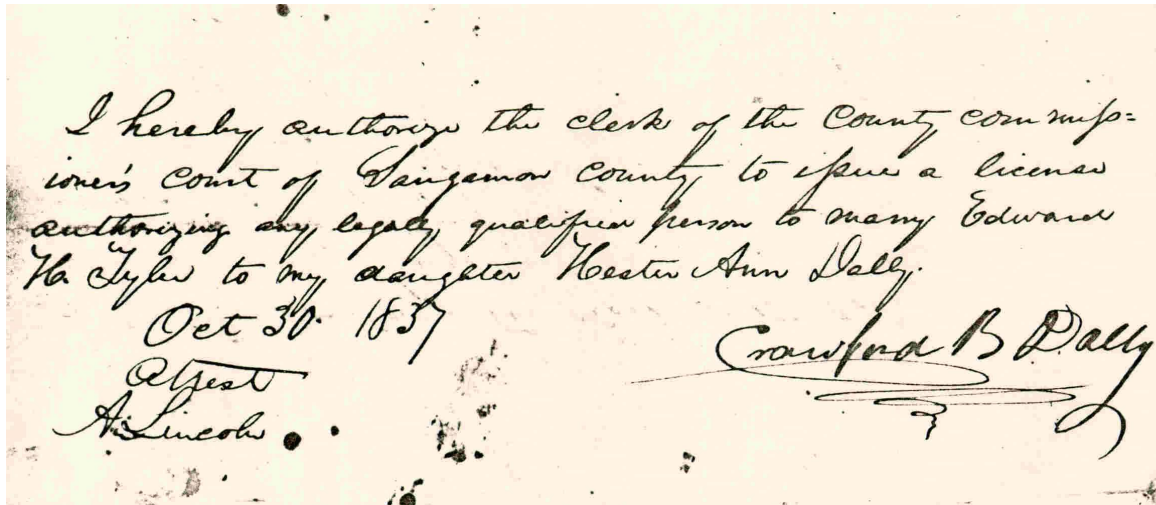 I hereby authorize the clerk of the County commiss=
ioner's court of Sangamon county to issue a license
authorizing any legally qualified person to marry Edward
H. Tyler to my daughter Hester Ann Dally.
Oct 30. 1837
Crawford B Dally
Attest
A. Lincoln